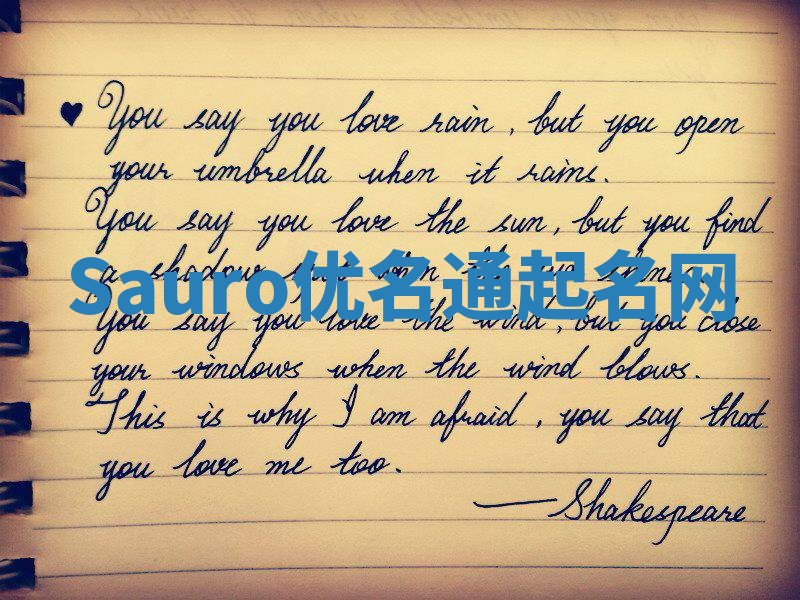 ♥ You say you love rain, but you open
your umbrella when it rains.
You say you love the sun, but you find
a shadow spot when the sun shines.
Sauro优名通起名网
You say you love the wind, but you close
your windows when the wind blows.
This is why I am afraid, you say that
you love me too.
—Shakespeare